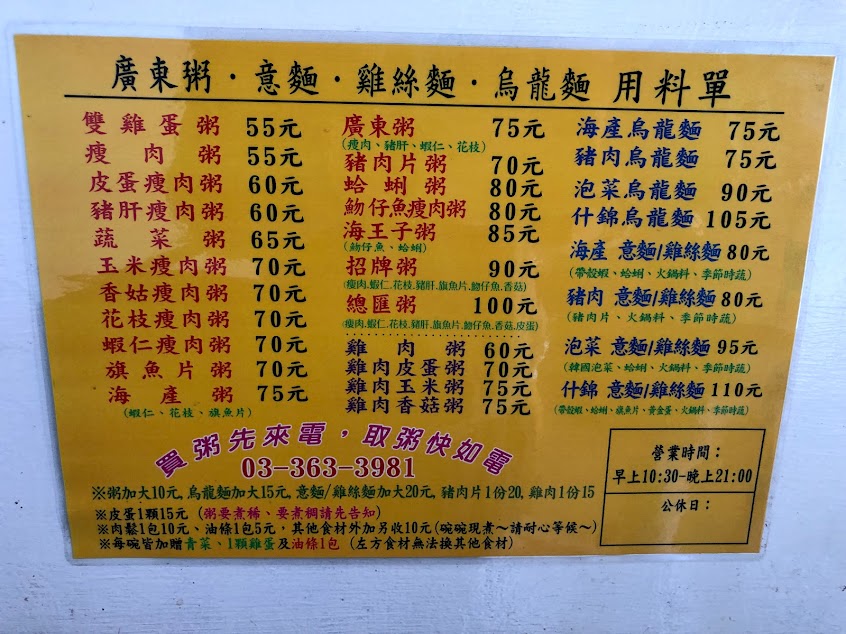 廣東粥·意麵·雞絲麵·烏龍麵 用料單
雙雞蛋粥 55元
瘦肉粥 55元
皮蛋瘦肉粥 60元
豬肝瘦肉粥 60元
蔬菜粥 65元
玉米瘦肉粥 70元
香姑瘦肉粥 70元
花枝瘦肉粥 70元
蝦仁瘦肉粥 70元
旗魚片粥 70元
海產粥 75元
(蝦仁、花枝、旗魚片)
廣東粥 75元
(瘦肉、豬肝、蝦仁、花枝)
豬肉片粥 70元
蛤蜊粥 80元
魩仔魚瘦肉粥 80元
海王子粥 85元
(魩仔魚、蛤蜊)
招牌粥 90元
(瘦肉,蝦仁,花枝,豬肝,旗魚片,魩仔魚,香菇)
總匯粥 100元
(瘦肉,蝦仁,花枝,豬肝,旗魚片,魩仔魚,香菇,皮蛋)
雞肉粥 60元
雞肉皮蛋粥 70元
雞肉玉米粥 75元
雞肉香菇粥 75元
海產烏龍麵 75元
豬肉烏龍麵 75元
泡菜烏龍麵 90元
什錦烏龍麵 105元
海產 意麵/雞絲麵 80元
(帶殼蝦、蛤蜊、火鍋料、季節時蔬)
豬肉 意麵/雞絲麵 80元
(豬肉片、火鍋料、季節時蔬)
泡菜 意麵/雞絲麵 95元
(韓國泡菜、蛤蜊、火鍋料、季節時蔬)
什錦 意麵/雞絲麵 110元
(帶殼蝦、蛤蜊、旗魚片、黃金蛋、火鍋料、季節時蔬)
買粥先來電，取粥快如電
03-363-3981
※粥加大10元, 烏龍麵加大15元, 意麵/雞絲麵加大20元, 豬肉片1份20, 雞肉1份15
※皮蛋1顆15元 (粥要煮稀、要煮稠請先告知)
※肉鬆1包10元、油條1包5元，其他食材外加另收10元(碗碗現煮～請耐心等候～)
※每碗皆加贈青菜、1顆雞蛋及油條1包 (左方食材無法換其他食材)
營業時間：
早上10:30-晚上21:00
公休日：